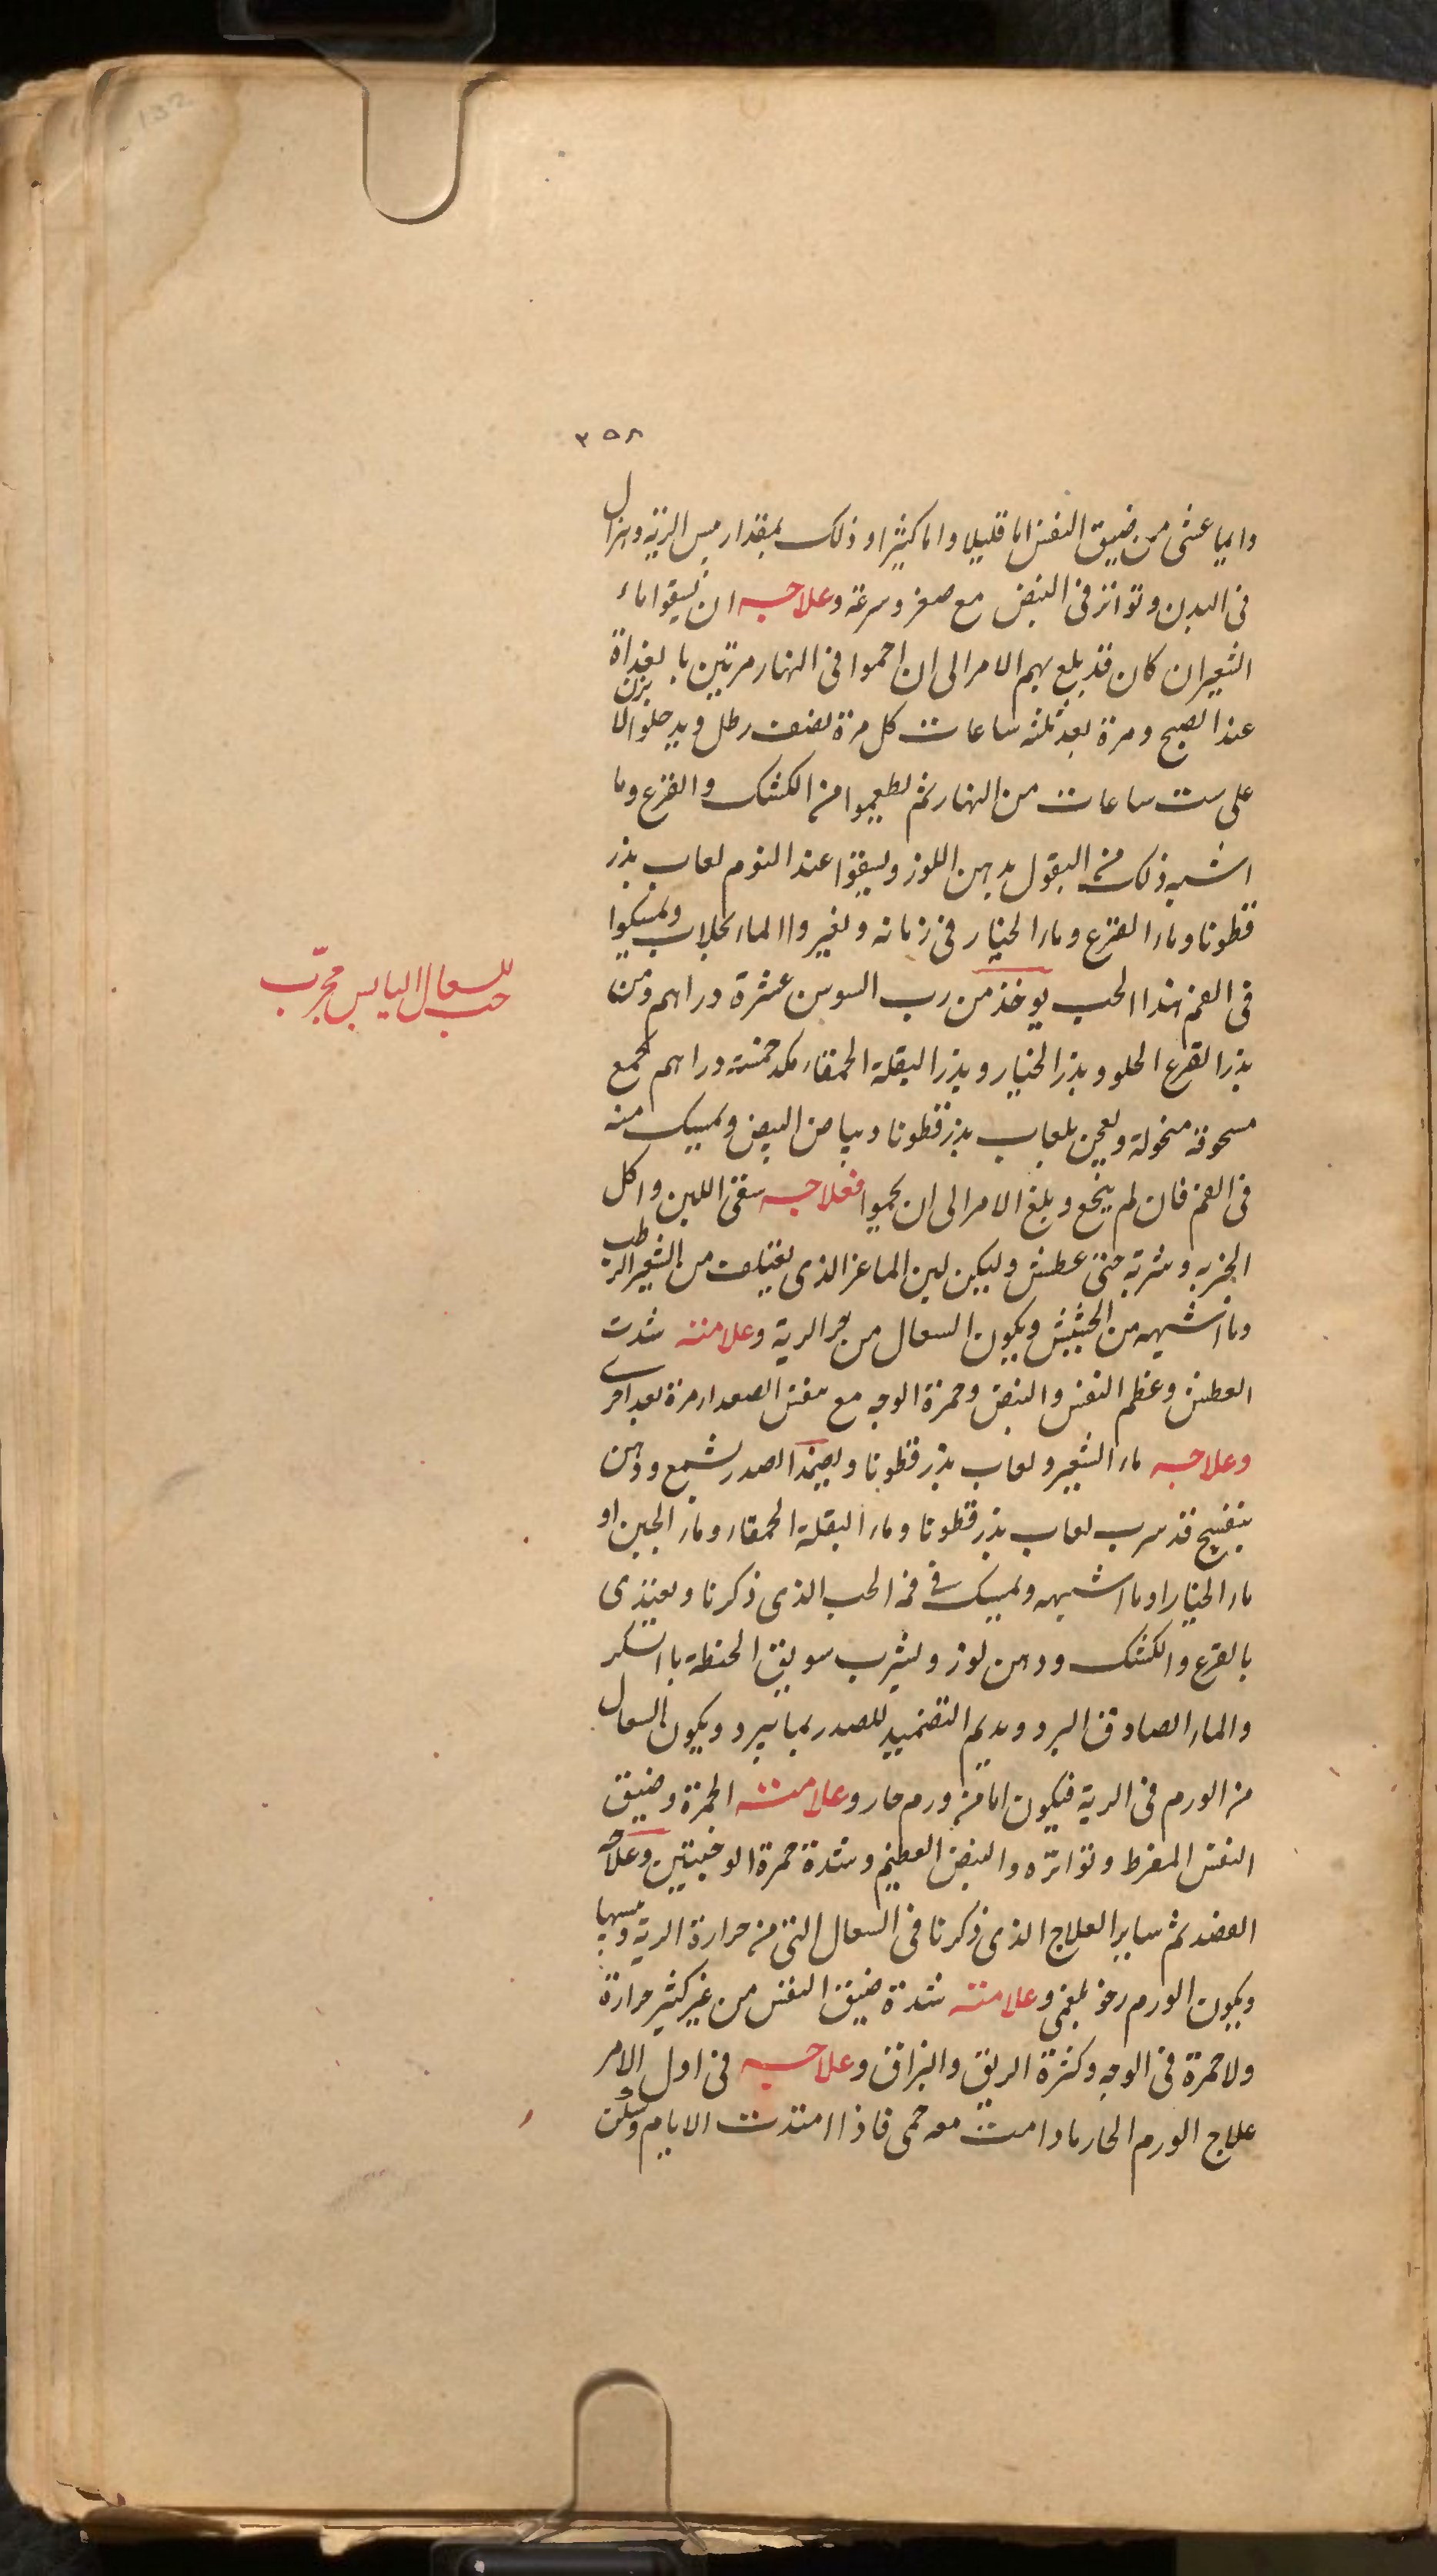 132
٣٥٨
من ضيق النفس اما قليلا واما كثيرا وذلك بمقدار يبس الرية وهزال
فى البدن وتواتر فى النبض مع صغر وسرعة وعلاجه ان يسقوا ماء
الشعير ان كان قد بلغ بهم الامر الى ان احموا فى النهار مرتين بالغداة
عند الصبح ومرة بعد ثلثه ساعات كل مرة نصف رطل ويدخلوا الابزن
على ست ساعات من النهار ثم يطعموا من الكشك والقرع وما
اشبه ذلك من البقول بدهن اللوز ويسقوا عند النوم لعاب بذر
قطونا وماء القرع وماء الخيار فى زمانه ويغيروا الماء بجلاب ويمسكوا
فى الفم هذا الحب يوخذ من رب السوس عشرة دراهم ومن
بذر القرع الحلو وبذر الخيار وبذر البقلة الحمقاء مكد خمسة دراهم تجمع
مسحوقة منخولة ويعجن بلعاب بذر قطونا وبياض البيض ويمسك منه
فى الفم فان لم ينجع وبلغ الامر الى ان يحموا فعلاجه سقى اللبن واكل
الخبز به وشربه متى عطش وليكن لبن الماعز الذى يعتلف من الشعير الرطب
وما اشبهه من الحشيش ويكون السعال من حر الرية وعلامته شدت
العطش وعظم النفس والنبض وحمرة الوجه مع تنفس الصعداء مرة بعد اخرى
وعلاجه ماء الشعير ولعاب بذر قطونا ويضمد الصدر بشمع ودهن
بنفسج قد سرب لعاب بذر قطونا وماء البقلة الحمقاء وماء الجبن او
ماء الخيار او ما اشبهه ويمسك فى فمه الحب الذى ذكرنا ويغتذى
بالقرع والكشك ودهن لوز ويشرب سويق الحنطة باالسكر
والماء الصادق البرد ويديم التضميد للصدر بما يبرد ويكون السعال
من الورم فى الرية فيكون اما من ورم حار وعلامته الحمرة وضيق
النفس المفرط وتواتره والنبض العظيم وشدة حمرة الوجنتين وعلاجه
الفصد ثم ساير العلاج الذى ذكرنا فى السعال التى من حرارة الرية ويبسها
ويكون الورم رخو بلغمى وعلامته شدة ضيق النفس من غير كثير حرارة
ولا حمرة فى الوجه وكثرة الريق والبزاق وعلاجه فى اول الامر
علاج الورم الحار ما دامت معه حمى فاذا امتدت الايام وسكن
للسعال اليابس مجرّب
حب